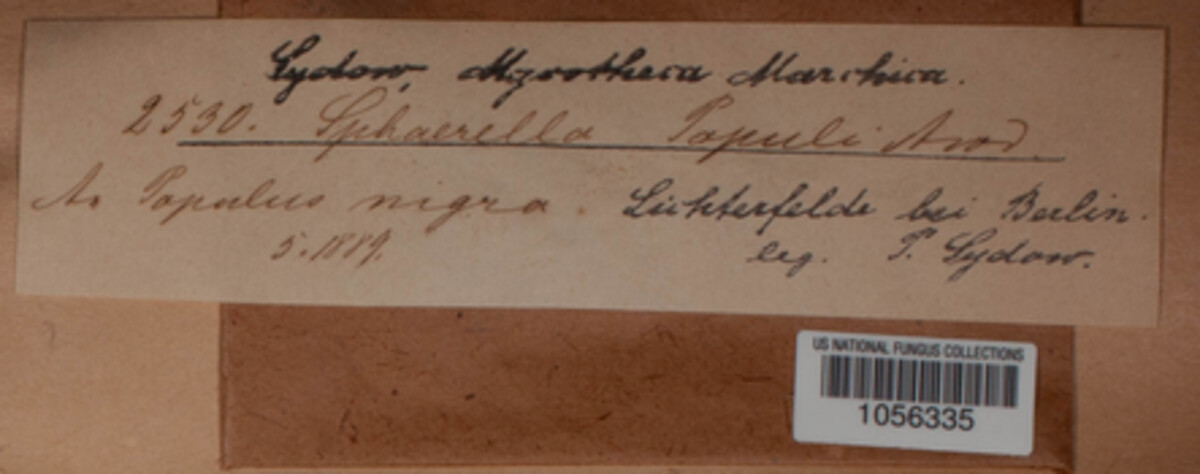 Sydow, Mycotheca Marchica.
2530. Sphaerella Populi Awd.
An Populus nigra. Lichterfelde bei Berlin.
5.1889. leg. P. Sydow.
US NATIONAL FUNGUS COLLECTIONS
1056335